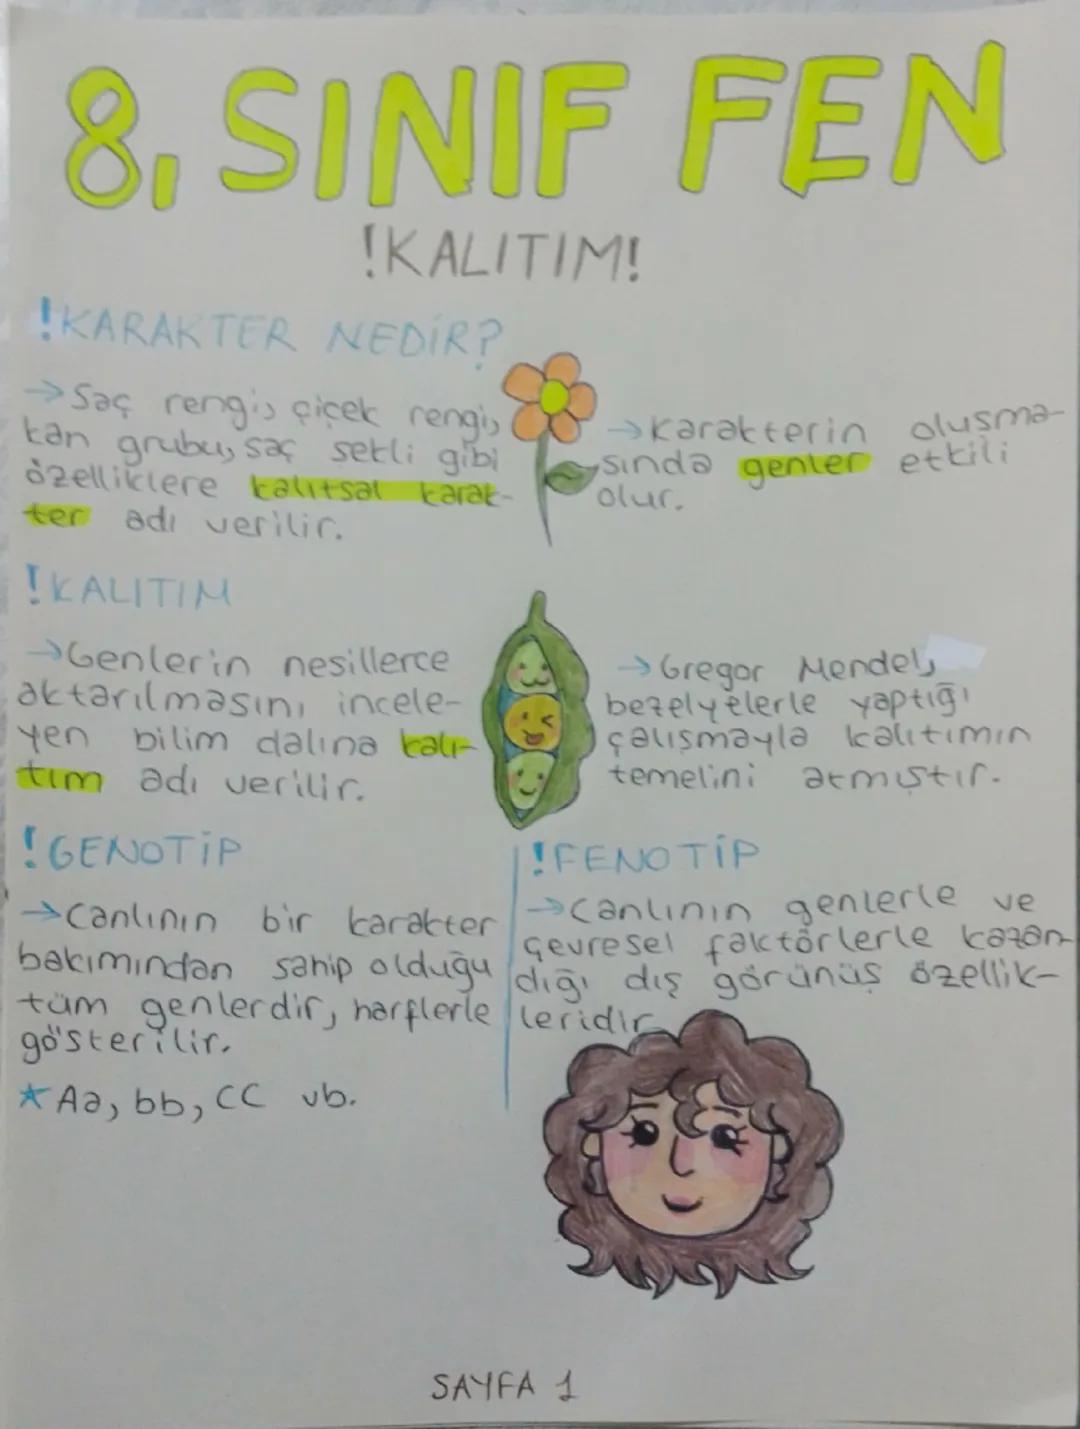 8. SINIF FEN
!KALITIM!
!KARAKTER NEDİR?
→Saç rengi, çiçek rengi,
kan grubu, saç şekli gibi
özelliklere kalıtsal karak-
ter adı verilir.
→Karakterin oluşma-
sında genler etkili
olur.
!KALITIM
→Genlerin nesillerce
aktarılmasını incele-
yen bilim dalına kalı-
tım adı verilir.
→Gregor Mendel,
bezelyelerle yaptığı
çalışmayla kalıtımın
temelini atmıştır.
!GENOTİP
→Canlının bir karakter
bakımından sahip olduğu
tüm genlerdir, harflerle
gösterilir.
★Aa, bb, CC vb.
!FENOTİP
→Canlının genlerle ve
çevresel faktörlerle kazan-
dığı dış görünüş özellik-
leridir.
SAYFA 1